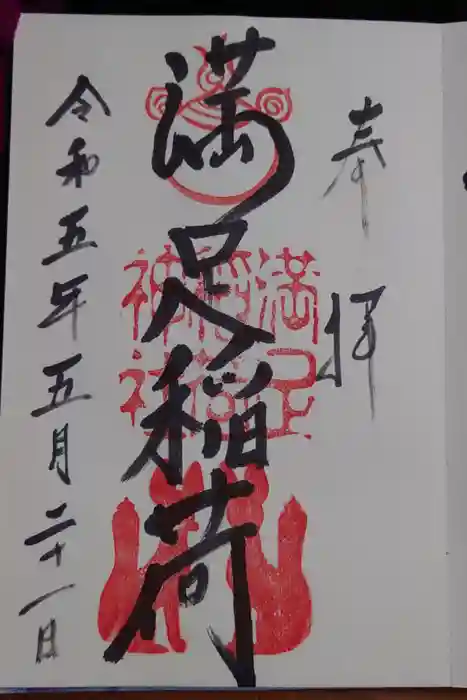 奉拝
満足稲荷
満足稲荷神社
令和五年五月二十一日